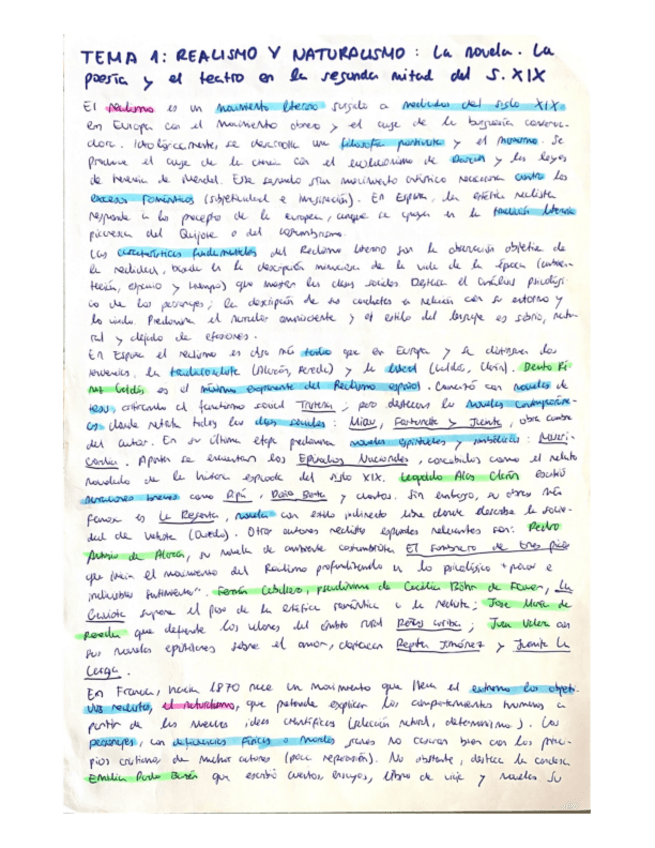 TEMA 1: REALISMO Y NATURALISMO: La novela. La
poesía y el teatro en la segunda mitad del S. XIX
El realismo es un movimiento literario surgido a mediados del siglo XIX
en Europa con el movimiento obrero y el auge de la burguesía conserva-
dora. Ideológicamente, se desarrolla una filosofía positivista y el marxismo. Se
produce el auge de la ciencia con el evolucionismo de Darwin y las leyes
de herencia de Mendel. Este segundo gran movimiento artístico reacciona contra los
excesos románticos (subjetividad e imaginación). En España, la estética realista
responde a los preceptos de la europea, aunque se apoya en la tradición literaria
picaresca del Quijote o del costumbrismo.
Las características fundamentales del Realismo literario son la observación objetiva de
la realidad, basada en la descripción minuciosa de la vida de la época
espacio y tiempo) que muestran las clases sociales. Destaca el análisis psicológi-
co de los personajes; la descripción de sus conductas en relación con su entorno y
lo vivido. Predomina el narrador omnisciente y el estilo del lenguaje es sobrio, natu-
ral y alejado de efusiones.
En España el realismo es algo más tardío que en Europa y se distinguen dos
tendencias, la tradicionalista (Alarcón, Pereda) y la liberal (Galdós, Clarín). Benito Pé
rez Galdós es el máximo exponente del Realismo español. Comenzó con novelas de
tesis, criticando el fanatismo social Tristana; pero destacan las novelas contemporáne-
as donde retrata todas las clases sociales: Miau, Fortunata y Jacinta, obra cumbre
del autor. En su última etapa predominan novelas espirituales y simbólicas: Miseri-
cordia. Aparte se encuentran los Episodios Nacionales, concebidos como el relato
novelado de la historia española del siglo XIX. Leopoldo Alas Clarín escribió
narraciones breves como Pipá, Doña Berta y cuentos. Sin embargo, su obra más
famosa es La Regenta, novela con estilo indirecto libre donde describe la socie-
dad de Vetusta (Oviedo). Otros autores realistas españoles relevantes son: Pedro
Antonio de Alarcón, su novela de ambiente costumbrista El sombrero de tres picos
que inicia el movimiento del Realismo profundizando en lo psicológico
Fernán Caballero, pseudónimo de Cecilia Böhl de Faber, La
Gaviota supone el paso de la estética romántica a la realista; José María de
Pereda que defiende los valores del ámbito rural Peñas arriba; Juan Valera con
sus novelas epistolares sobre el amor, destacan Pepita Jiménez y Juanita La
Larga.
En Francia, hacia 1870 nace un movimiento que lleva al extremo los objeti-
vos realistas, el naturalismo, que pretende explicar los comportamientos humanos a
partir de las nuevas ideas científicas (selección natural, determinismo). Los
personajes, con deficiencias físicas o morales no casaron bien con los princi-
pios cristianos de muchos autores (poca repercusión). No obstante, destaca la condesa
Emilia Pardo Bazán que escribió cuentos, ensayos, libros de viaje y novelas. Su